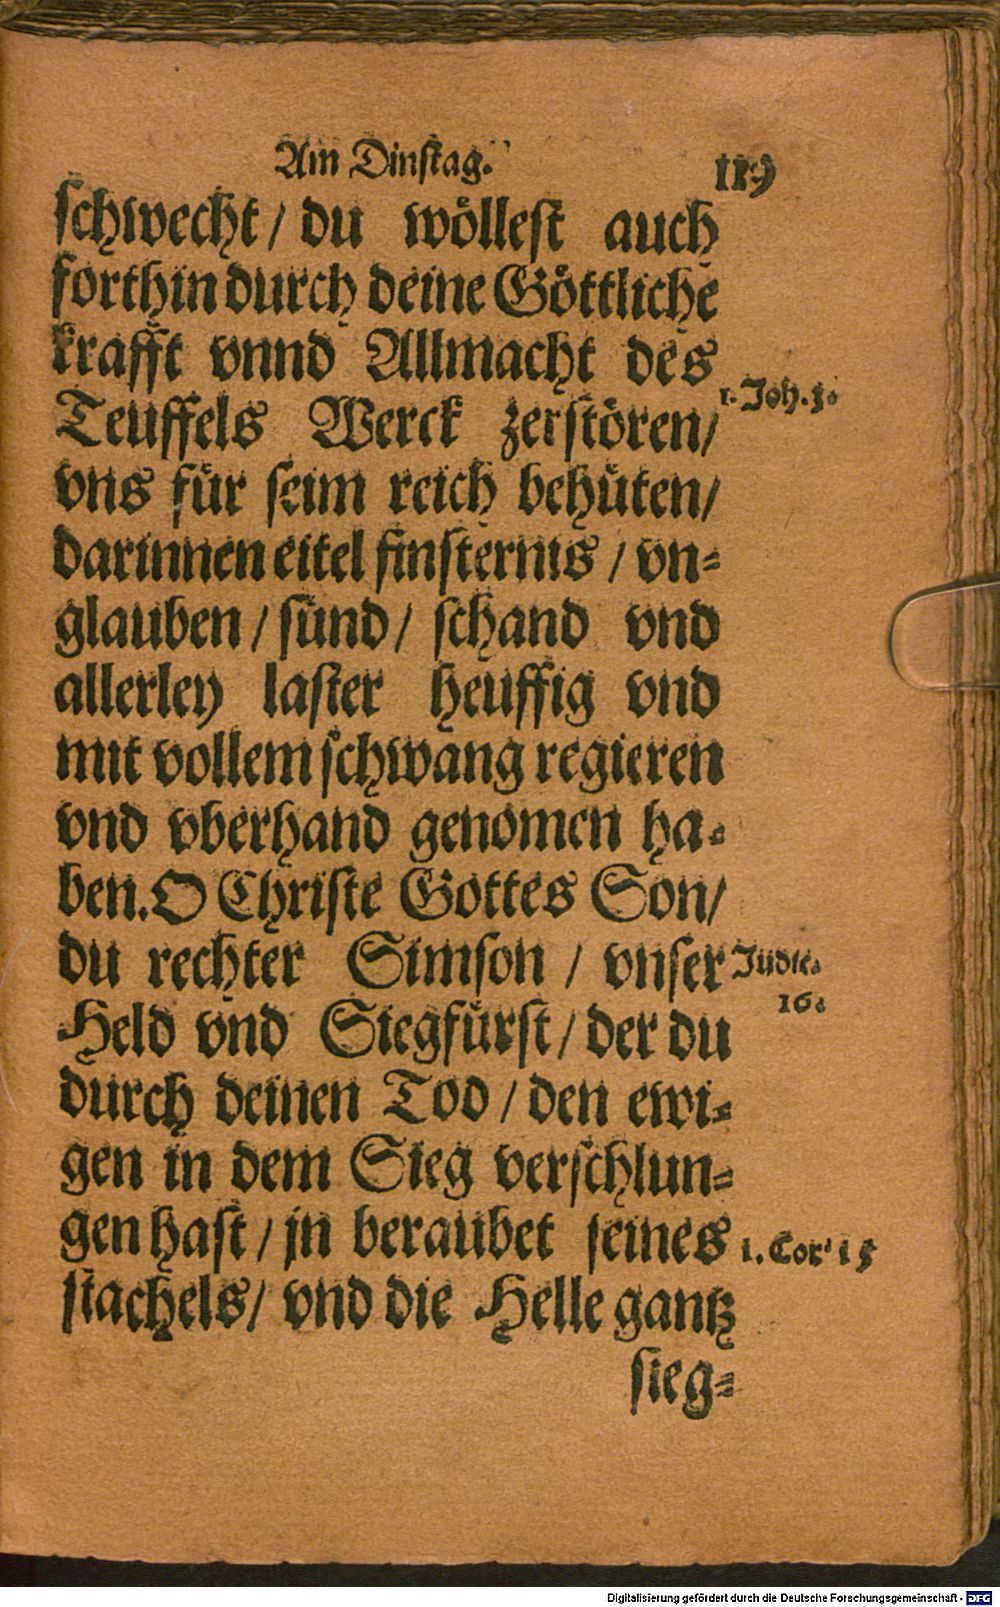 Am Dinstag. 119
schwecht / du wöllest auch
forthin durch deine Göttliche
krafft vnnd Allmacht des
Teuffels Werck zerstören /
1. Joh. 3.
vns für seim reich behüten /
darinnen eitel finsternis / vn=
glauben / sünd / schand vnd
allerley laster heuffig vnd
mit vollem schwang regieren
vnd vberhand genomen ha=
ben. O Christe Gottes Son /
du rechter Simson / vnser
Judic.
16.
Held vnd Siegfürst / der du
durch deinen Tod / den ewi=
gen in dem Sieg verschlun=
gen hast / jn beraubet seines
1. Cor. 15
stachels / vnd die Helle gantz
sieg=
Digitalisierung gefördert durch die Deutsche Forschungsgemeinschaft - DFG